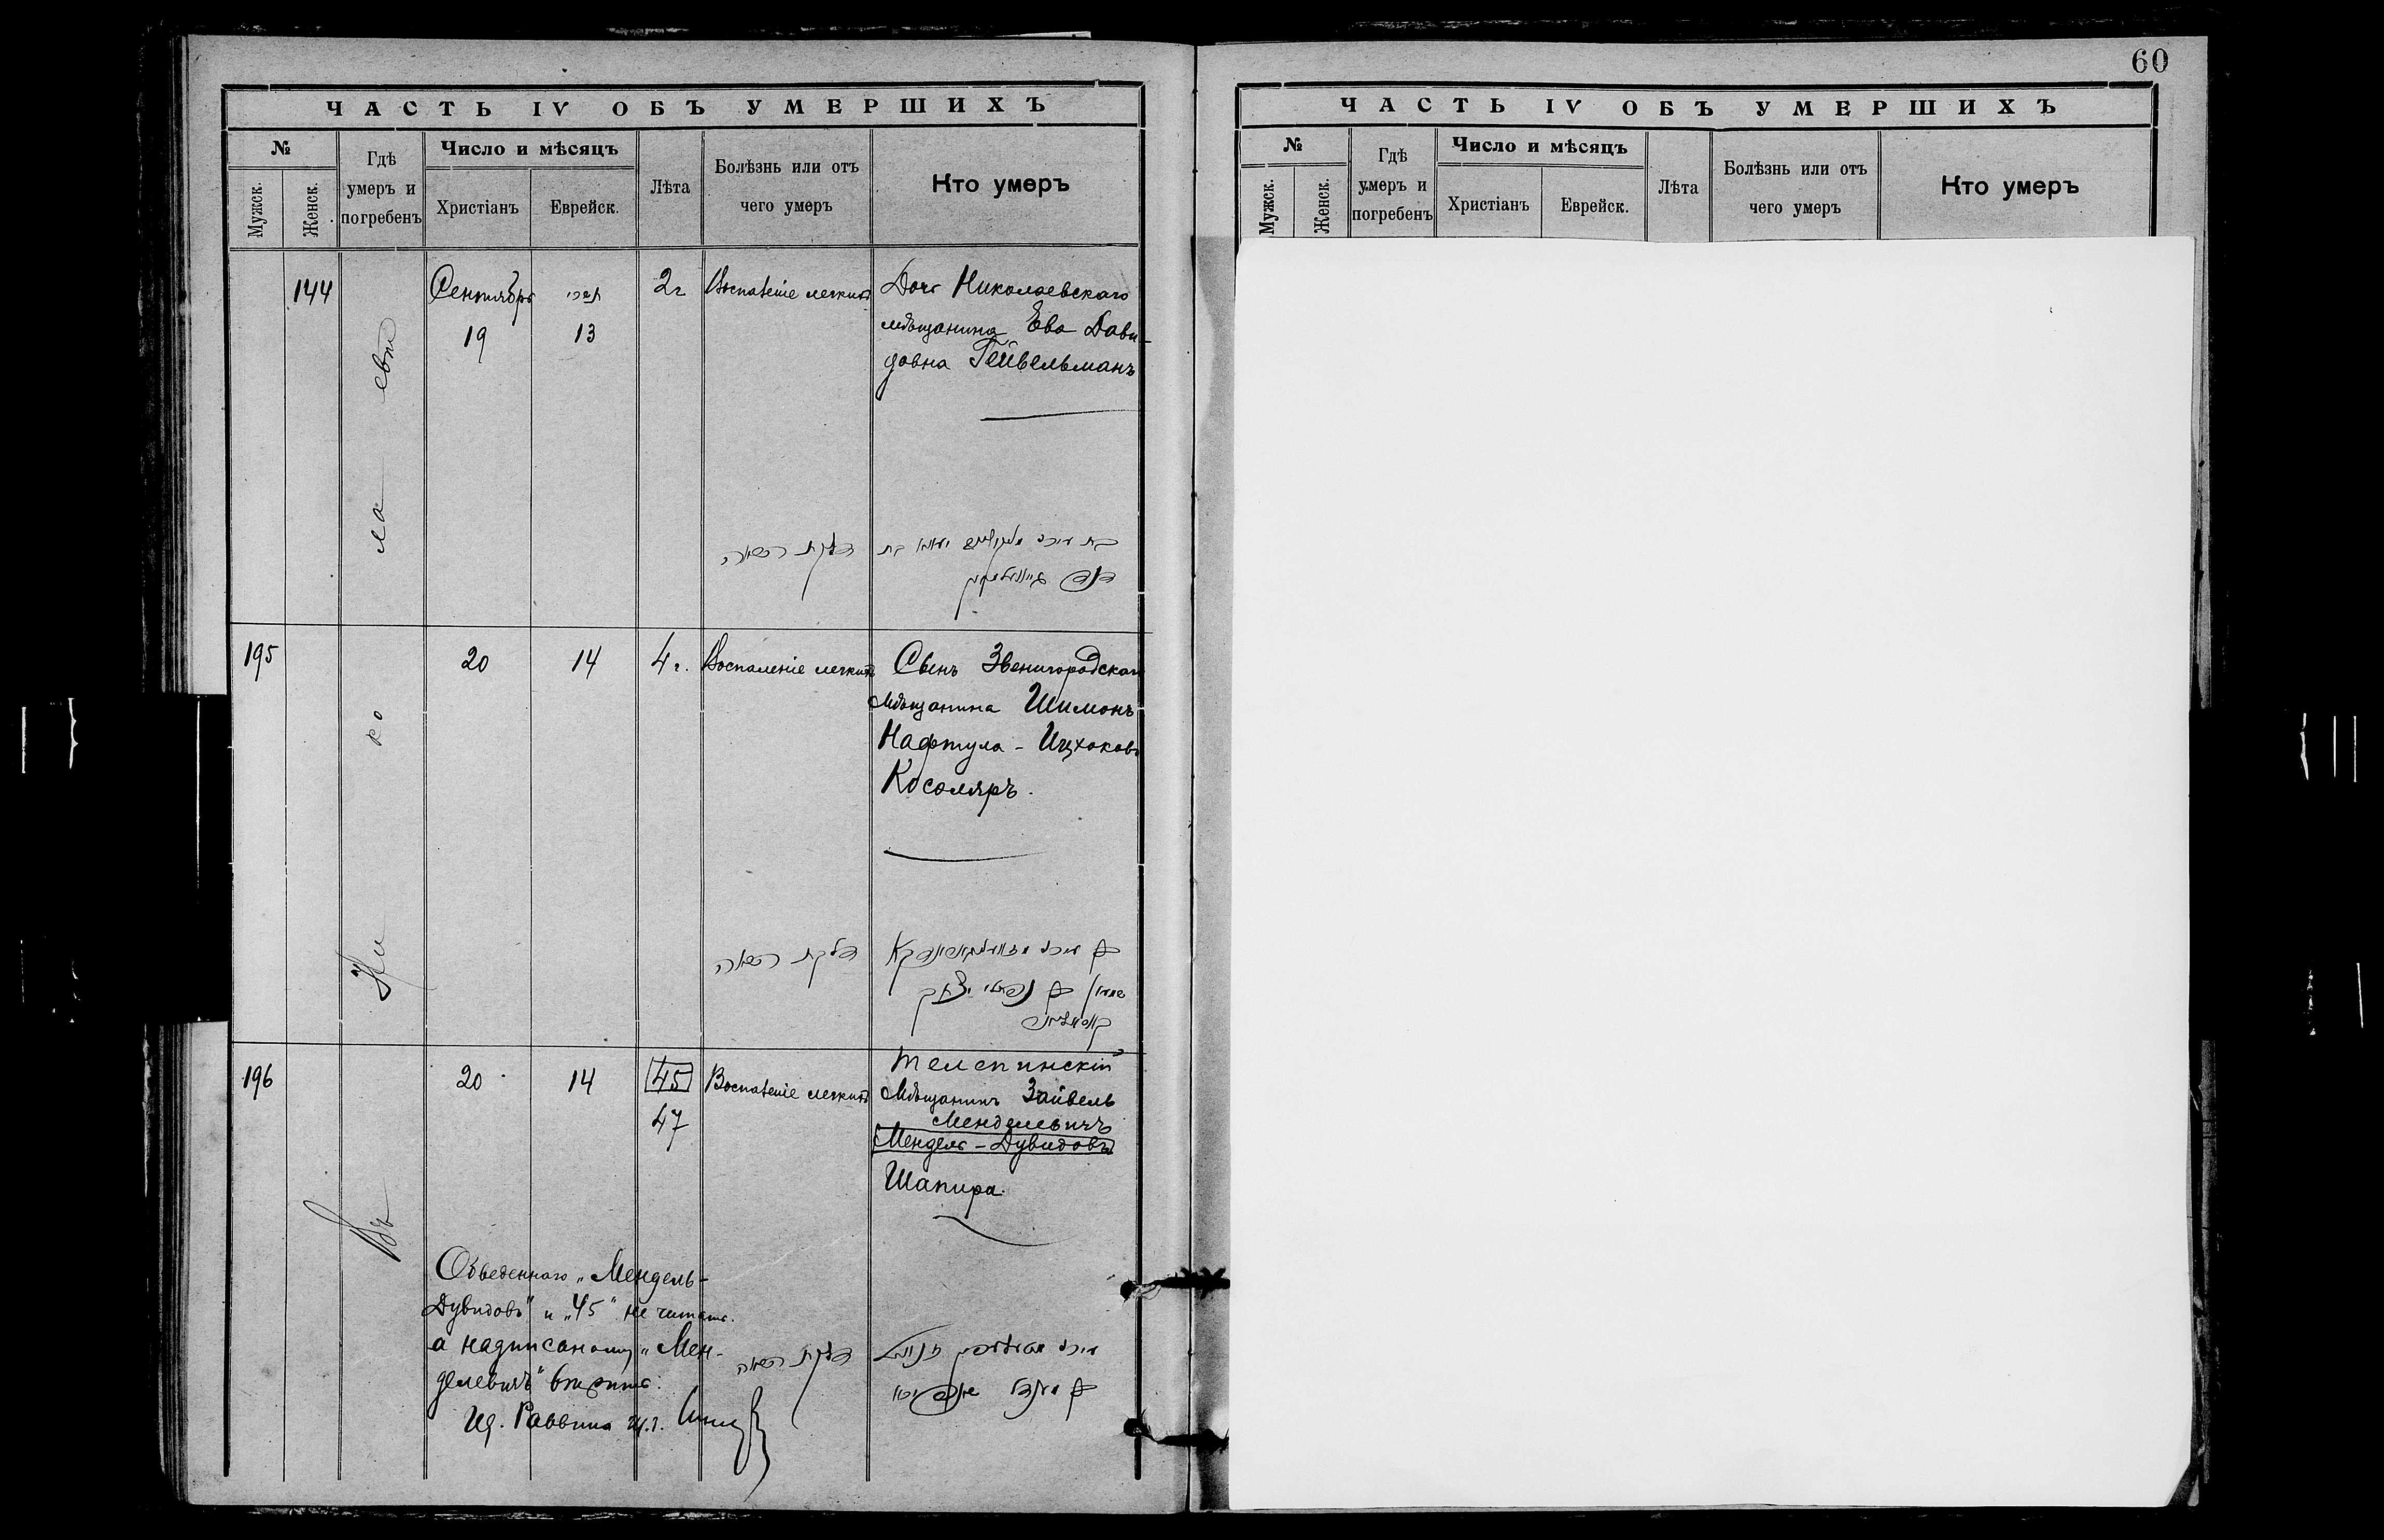 60
ЧАСТЬ IV ОБЪ УМЕРШИХЪ
№
Мужск.
Женск.
Гдѣ умеръ и погребенъ
Число и мѣсяцъ
Христіанъ
Еврейск.
Лѣта
Болѣзнь или отъ чего умеръ
Кто умеръ
Въ Николаевѣ
144
Сентябрь
19
תשרי
13
2 г
Воспаленіе легкихъ
Дочь Николаевскаго
мѣщанина Ева Дави-
довна Гейвельманъ
דלקת הריאה
195
20
14
4 г.
Воспаленіе легкихъ
Сынъ Звенигородскаго
Мѣщанина Шимонъ
Нафтула - Ицхоковъ
Косоляръ.
דלקת הריאה
שמעון בן נפתלי יצחק
196
20
14
45
47
Воспаленіе легкихъ
Телепинскій
Мѣщанинъ Зайвель
Менделевичъ
Мендель - Дувидовъ
Шапира.
Обведеннаго „Мендель-
Дувидовъ" и „45" не читать.
а надписаному „Мен-
делевичъ" вѣрить.
דלקת הריאה
בן מענדל שאפירא
ЧАСТЬ IV ОБЪ УМЕРШИХЪ
№
Мужск.
Женск.
Гдѣ умеръ и погребенъ
Число и мѣсяцъ
Христіанъ
Еврейск.
Лѣта
Болѣзнь или отъ чего умеръ
Кто умеръ